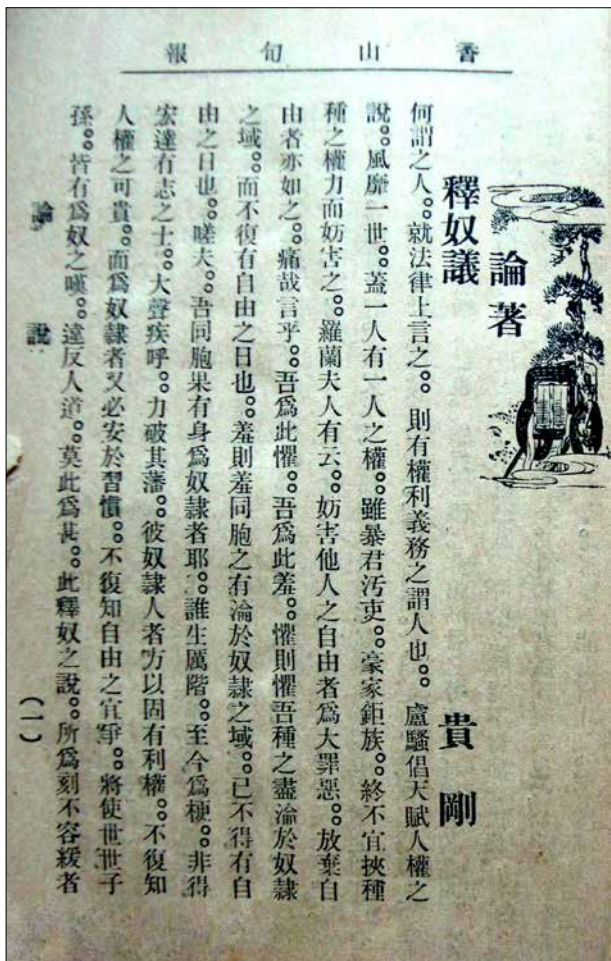 香山旬報
論著
釋奴議　貴剛
何謂之人。。就法律上言之。。則有權利義務之謂人也。。盧騷倡天賦人權之
說。。風靡一世。。蓋一人有一人之權。。雖暴君汚吏。。豪家鉅族。。終不宜挾種
種之權力而妨害之。。羅蘭夫人有云。。妨害他人之自由者爲大罪惡。。放棄自
由者亦如之。。痛哉言乎。。吾爲此懼。。吾爲此羞。。懼則懼吾種之盡淪於奴隸
之域。。而不復有自由之日也。。羞則羞同胞之有淪於奴隸之域。。已不得有自
由之日也。。嗟夫。。吾同胞果有身爲奴隸者耶。。誰生厲階。。至今爲梗。。非得
宏達有志之士。。大聲疾呼。。力破其藩。。彼奴隸人者方以固有利權。。不復知
人權之可貴。。而爲奴隸者又必安於習慣。。不復知自由之宜爭。。將使世世子
孫。。皆有爲奴之嘆。。違反人道。。莫此爲甚。。此釋奴之說。。所爲刻不容緩者
論說
(一)